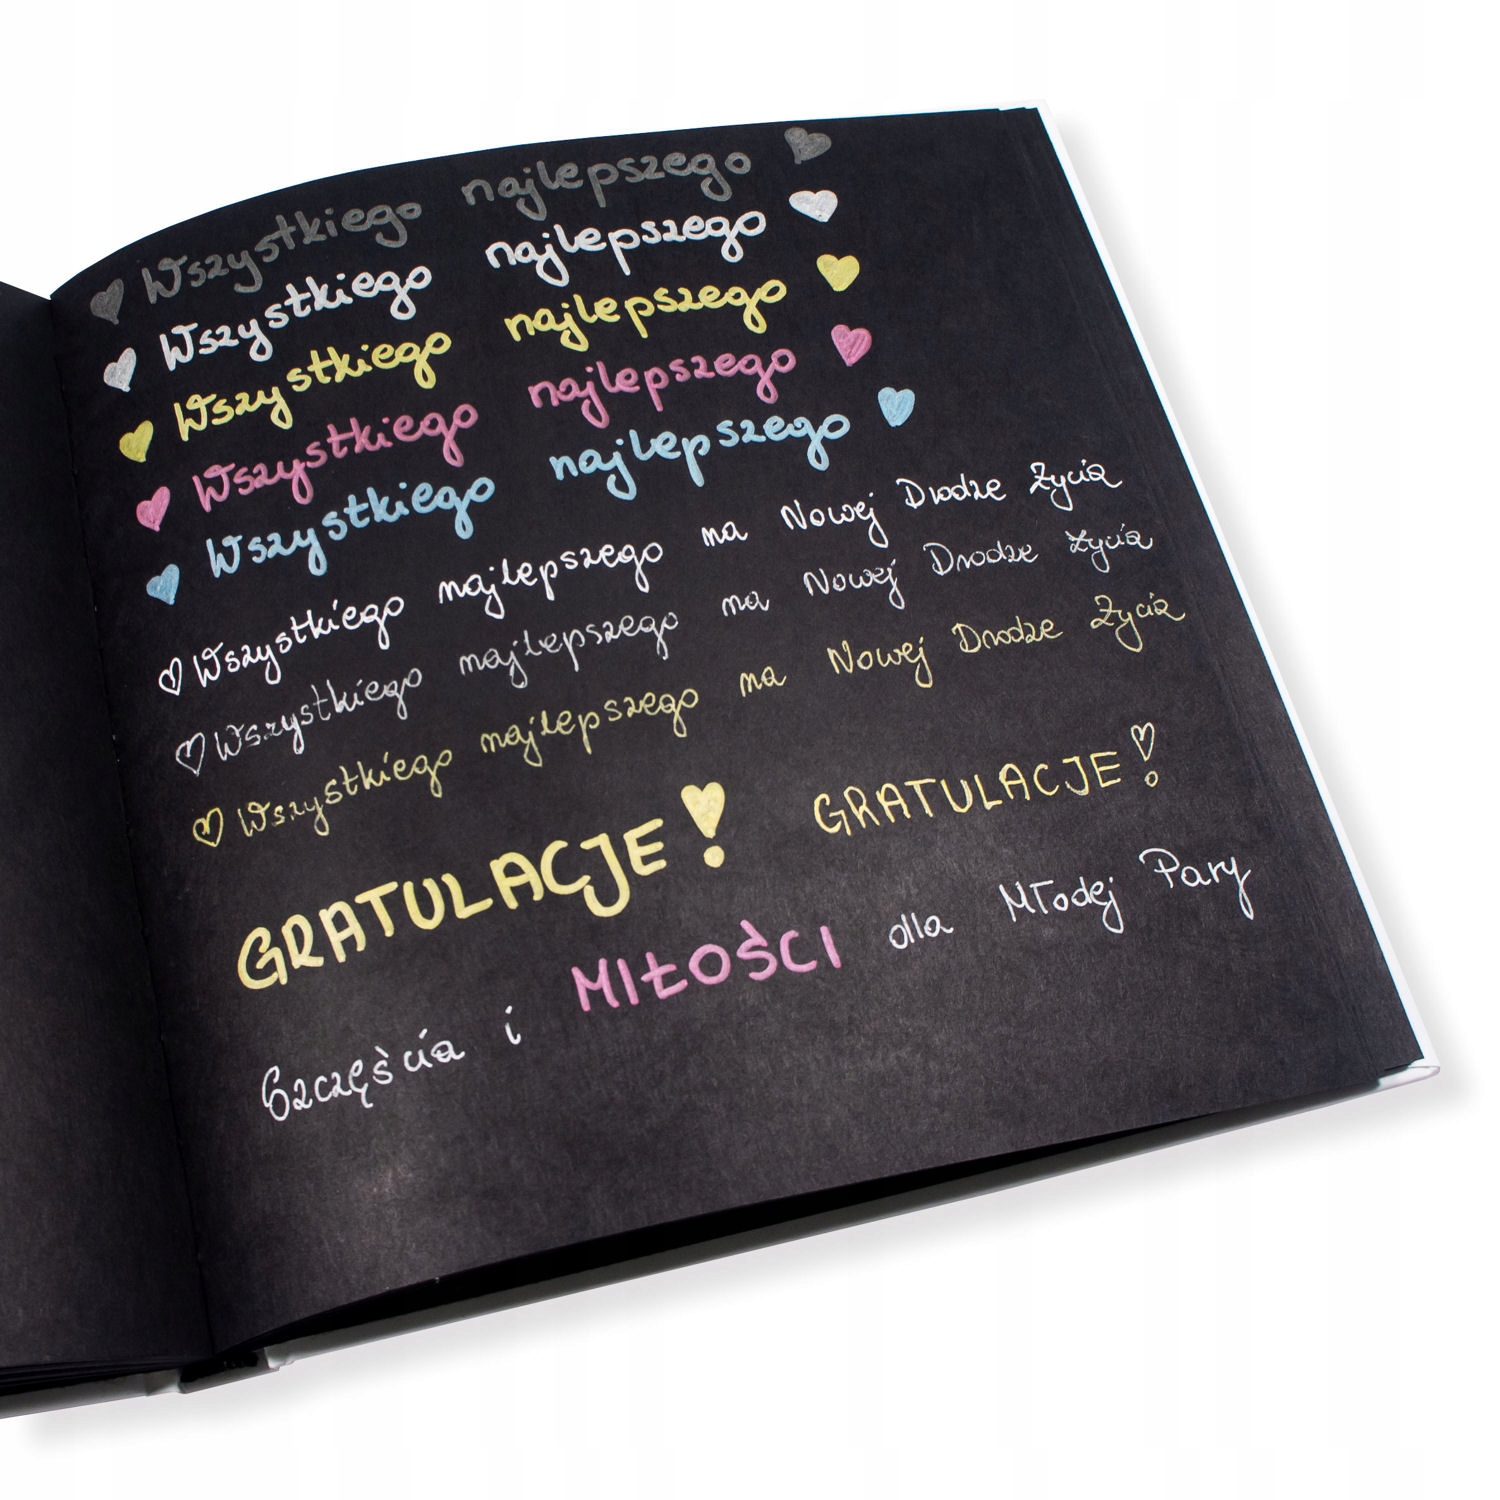 Wszystkiego najlepszego
Wszystkiego najlepszego
Wszystkiego najlepszego
Wszystkiego najlepszego
Wszystkiego najlepszego
Wszystkiego najlepszego na Nowej Drodze Życia
Wszystkiego najlepszego na Nowej Drodze Życia
Wszystkiego najlepszego na Nowej Drodze Życia
GRATULACJE! GRATULACJE!
Szczęścia i MIŁOŚCI dla Młodej Pary